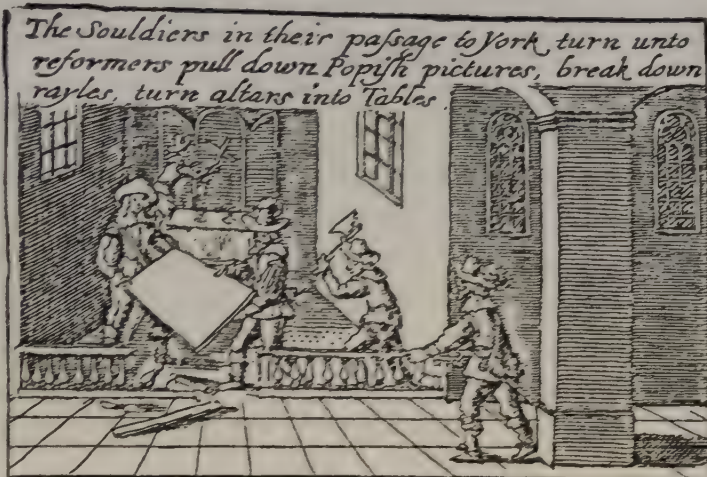 The Souldiers in their paſsage to York turn unto
reformers pull down Popiſh pictures, break down
rayles, turn altars into Tables.